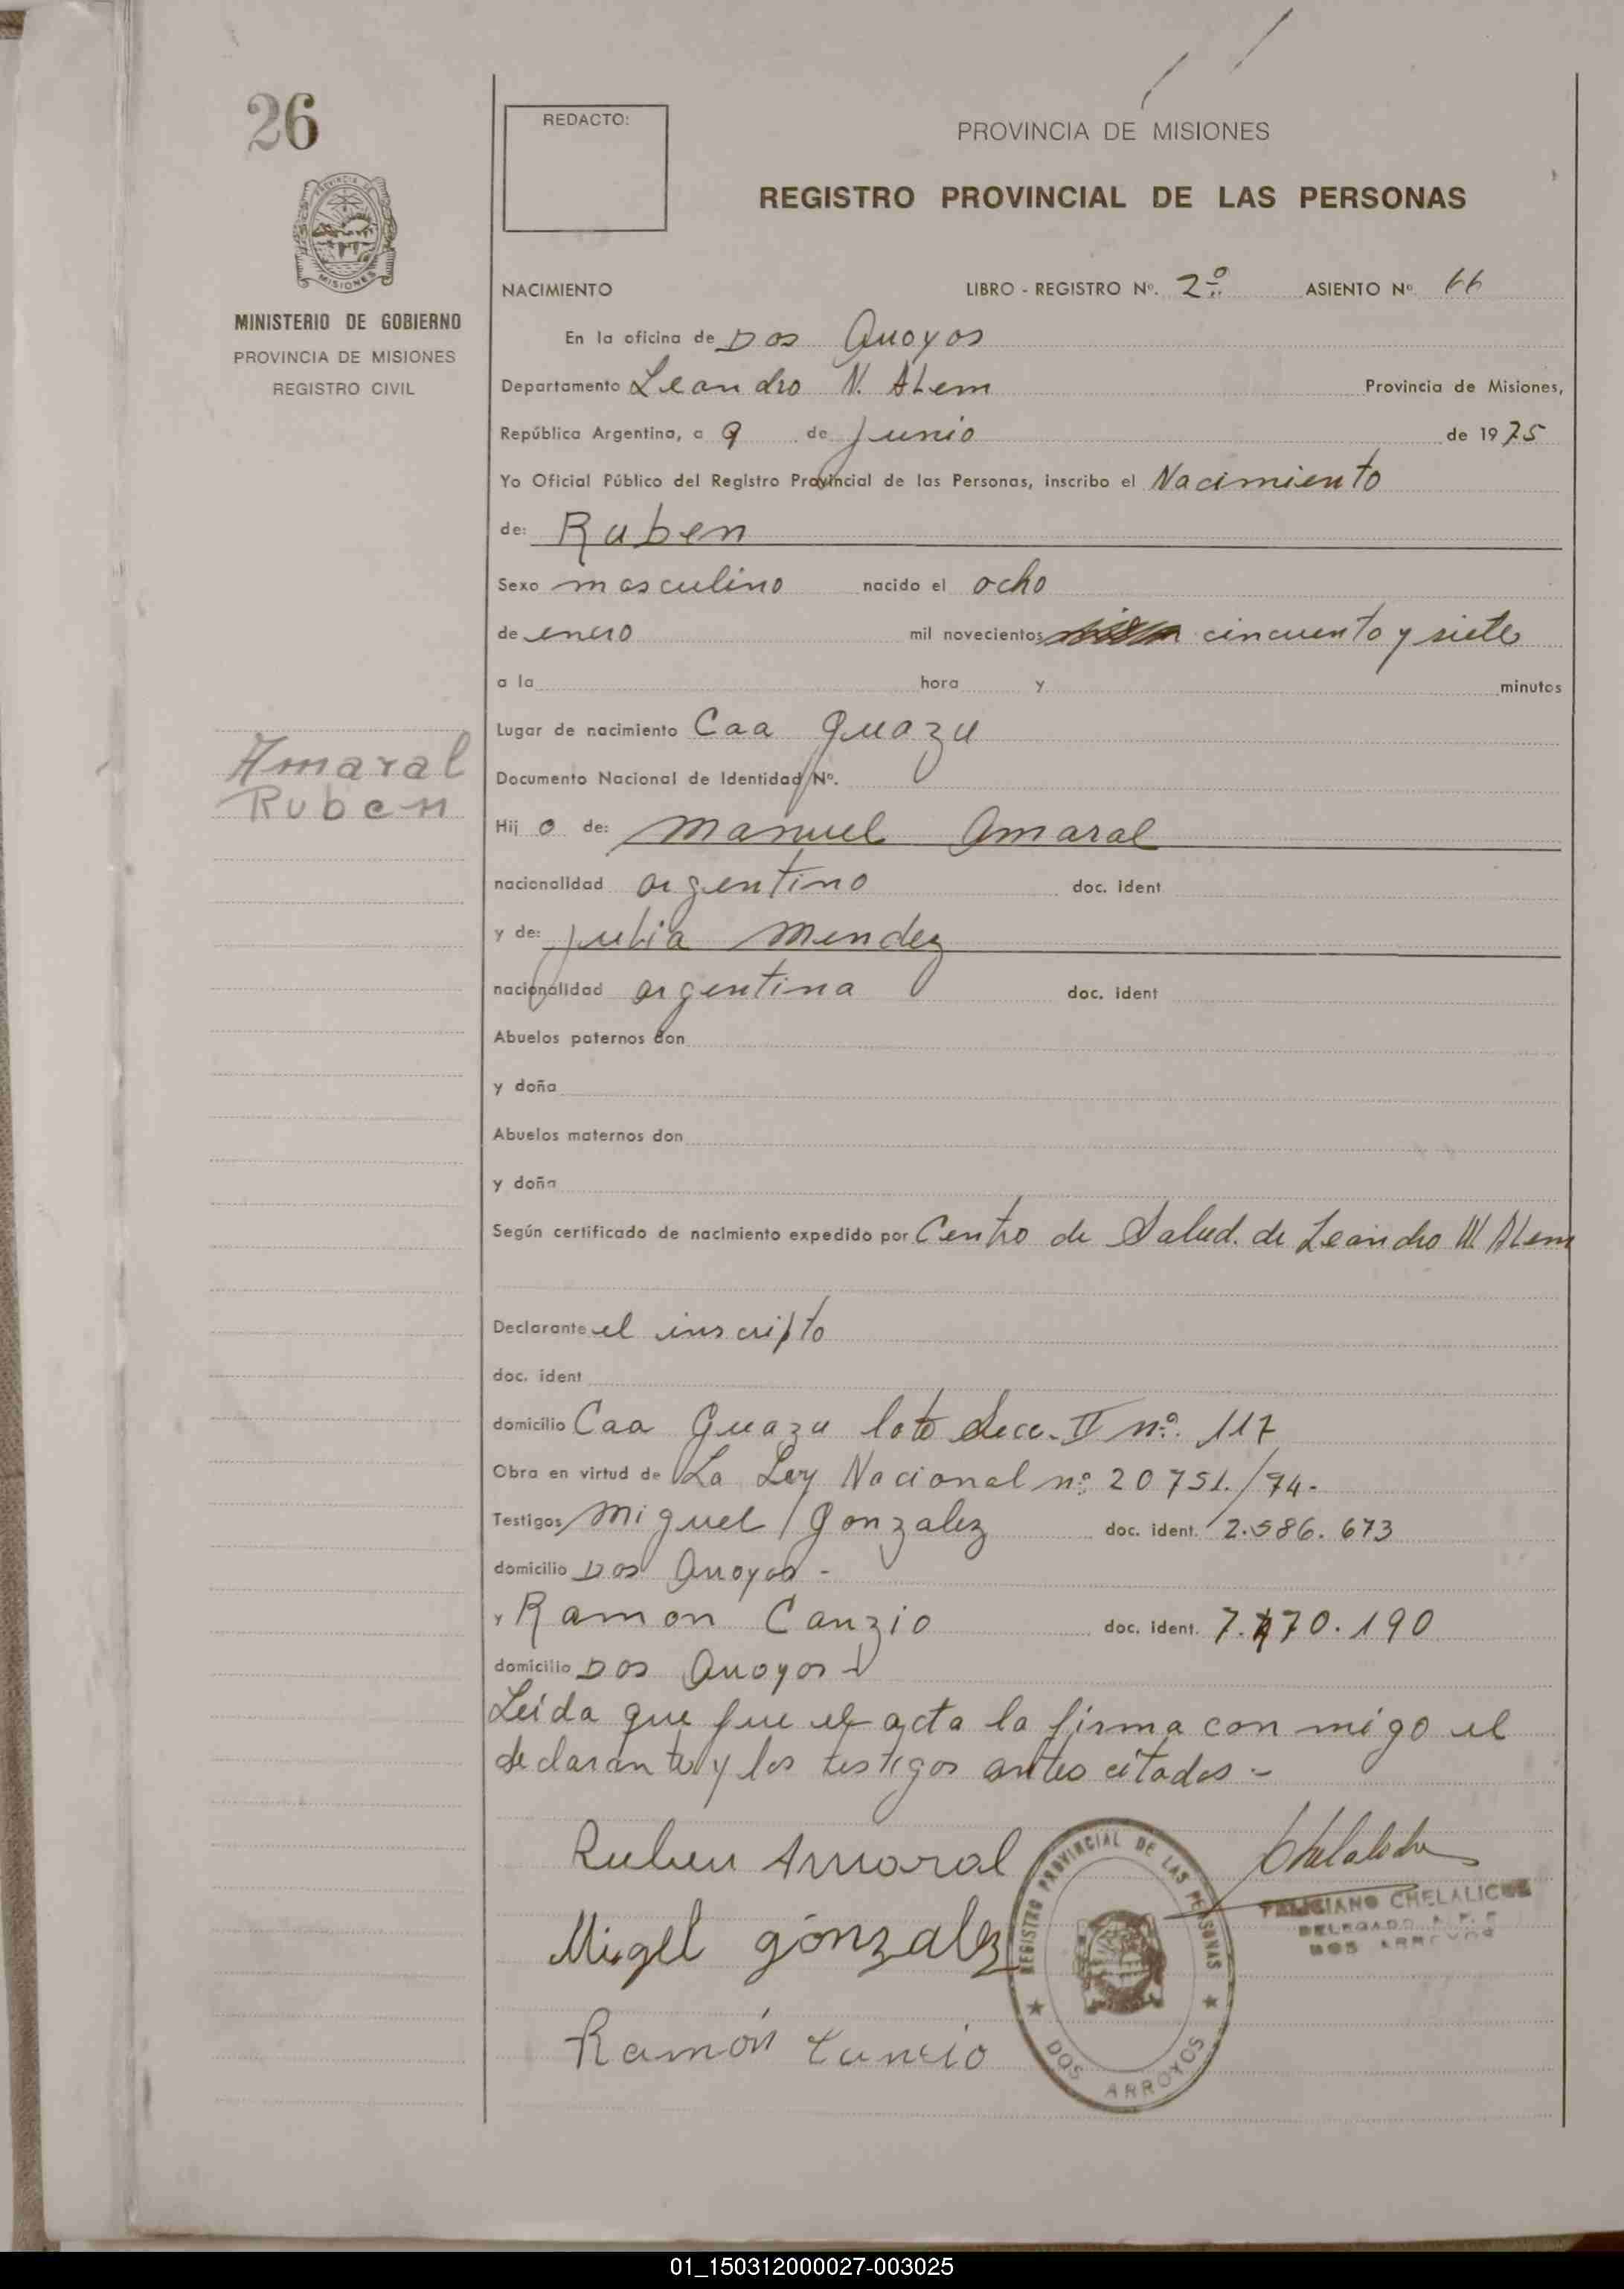 26
PROVINCIA DE MISIONES
MINISTERIO DE GOBIERNO
PROVINCIA DE MISIONES
REGISTRO CIVIL
Amaral
Ruben
REDACTO:
PROVINCIA DE MISIONES
REGISTRO PROVINCIAL DE LAS PERSONAS
NACIMIENTO LIBRO - REGISTRO Nº. 2º ASIENTO Nº 66
En la oficina de Dos Arroyos
Departamento Leandro N. Alem Provincia de Misiones,
República Argentina, a 9 de junio de 1975
Yo Oficial Público del Registro Provincial de las Personas, inscribo el Nacimiento
de: Ruben
Sexo masculino nacido el ocho
de enero mil novecientos cincuenta y siete
a la hora y minutos
Lugar de nacimiento Caa Guazu
Documento Nacional de Identidad Nº.
Hij o de: Manuel Amaral
nacionalidad argentino doc. ident
y de: Julia Mendez
nacionalidad argentina doc. ident
Abuelos paternos don
y doña
Abuelos maternos don
y doña
Según certificado de nacimiento expedido por Centro de Salud. de Leandro N. Alem
Declarante el inscripto
doc. ident
domicilio Caa Guazu lote Secc. II nº. 117
Obra en virtud de La Ley Nacional nº 20751./74.
Testigos Miguel Gonzalez doc. ident. 2.586.673
domicilio Dos Arroyos -
y Ramon Canzio doc. ident. 7.470.190
domicilio Dos Arroyos
Leida que fue el acta la firma con migo el
declarante y los testigos antes citados -
Ruben Amaral
Migel gónzalez
Ramón Cancio
REGISTRO PROVINCIAL DE LAS PERSONAS
DOS ARROYOS
FELICIANO CHELALICHE
DELEGADO R. P. P.
DOS ARROYOS
01_150312000027-003025